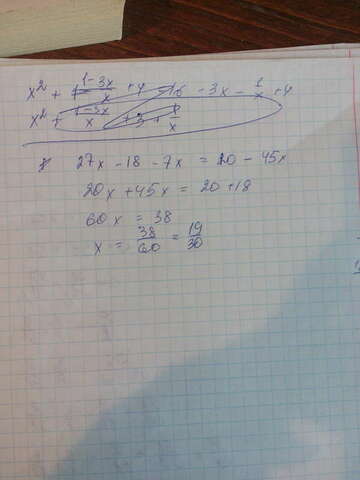 x² + (1-3x)/x + 4 16 - 3x - 1/x + 4
x² + (1-3x)/x + 3 +
27x - 18 - 7x = 20 - 45x
20x + 45x = 20 + 18
60x = 38
x = 38/60 = 19/30